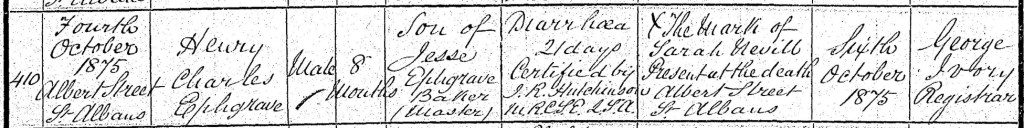 410
Fourth
October
1875
Albert Street
St Albans
Henry
Charles
Ephgrave
Male
8
Months
Son of
Jesse
Ephgrave
Baker
(Master)
Diarrhœa
21 days
Certified by
J. R. Hutchinson
M.R.C.S.E. L.S.A.
X The Mark of
Sarah Nevill
Present at the death
Albert Street
St Albans
Sixth
October
1875
George
Ivory
Registrar